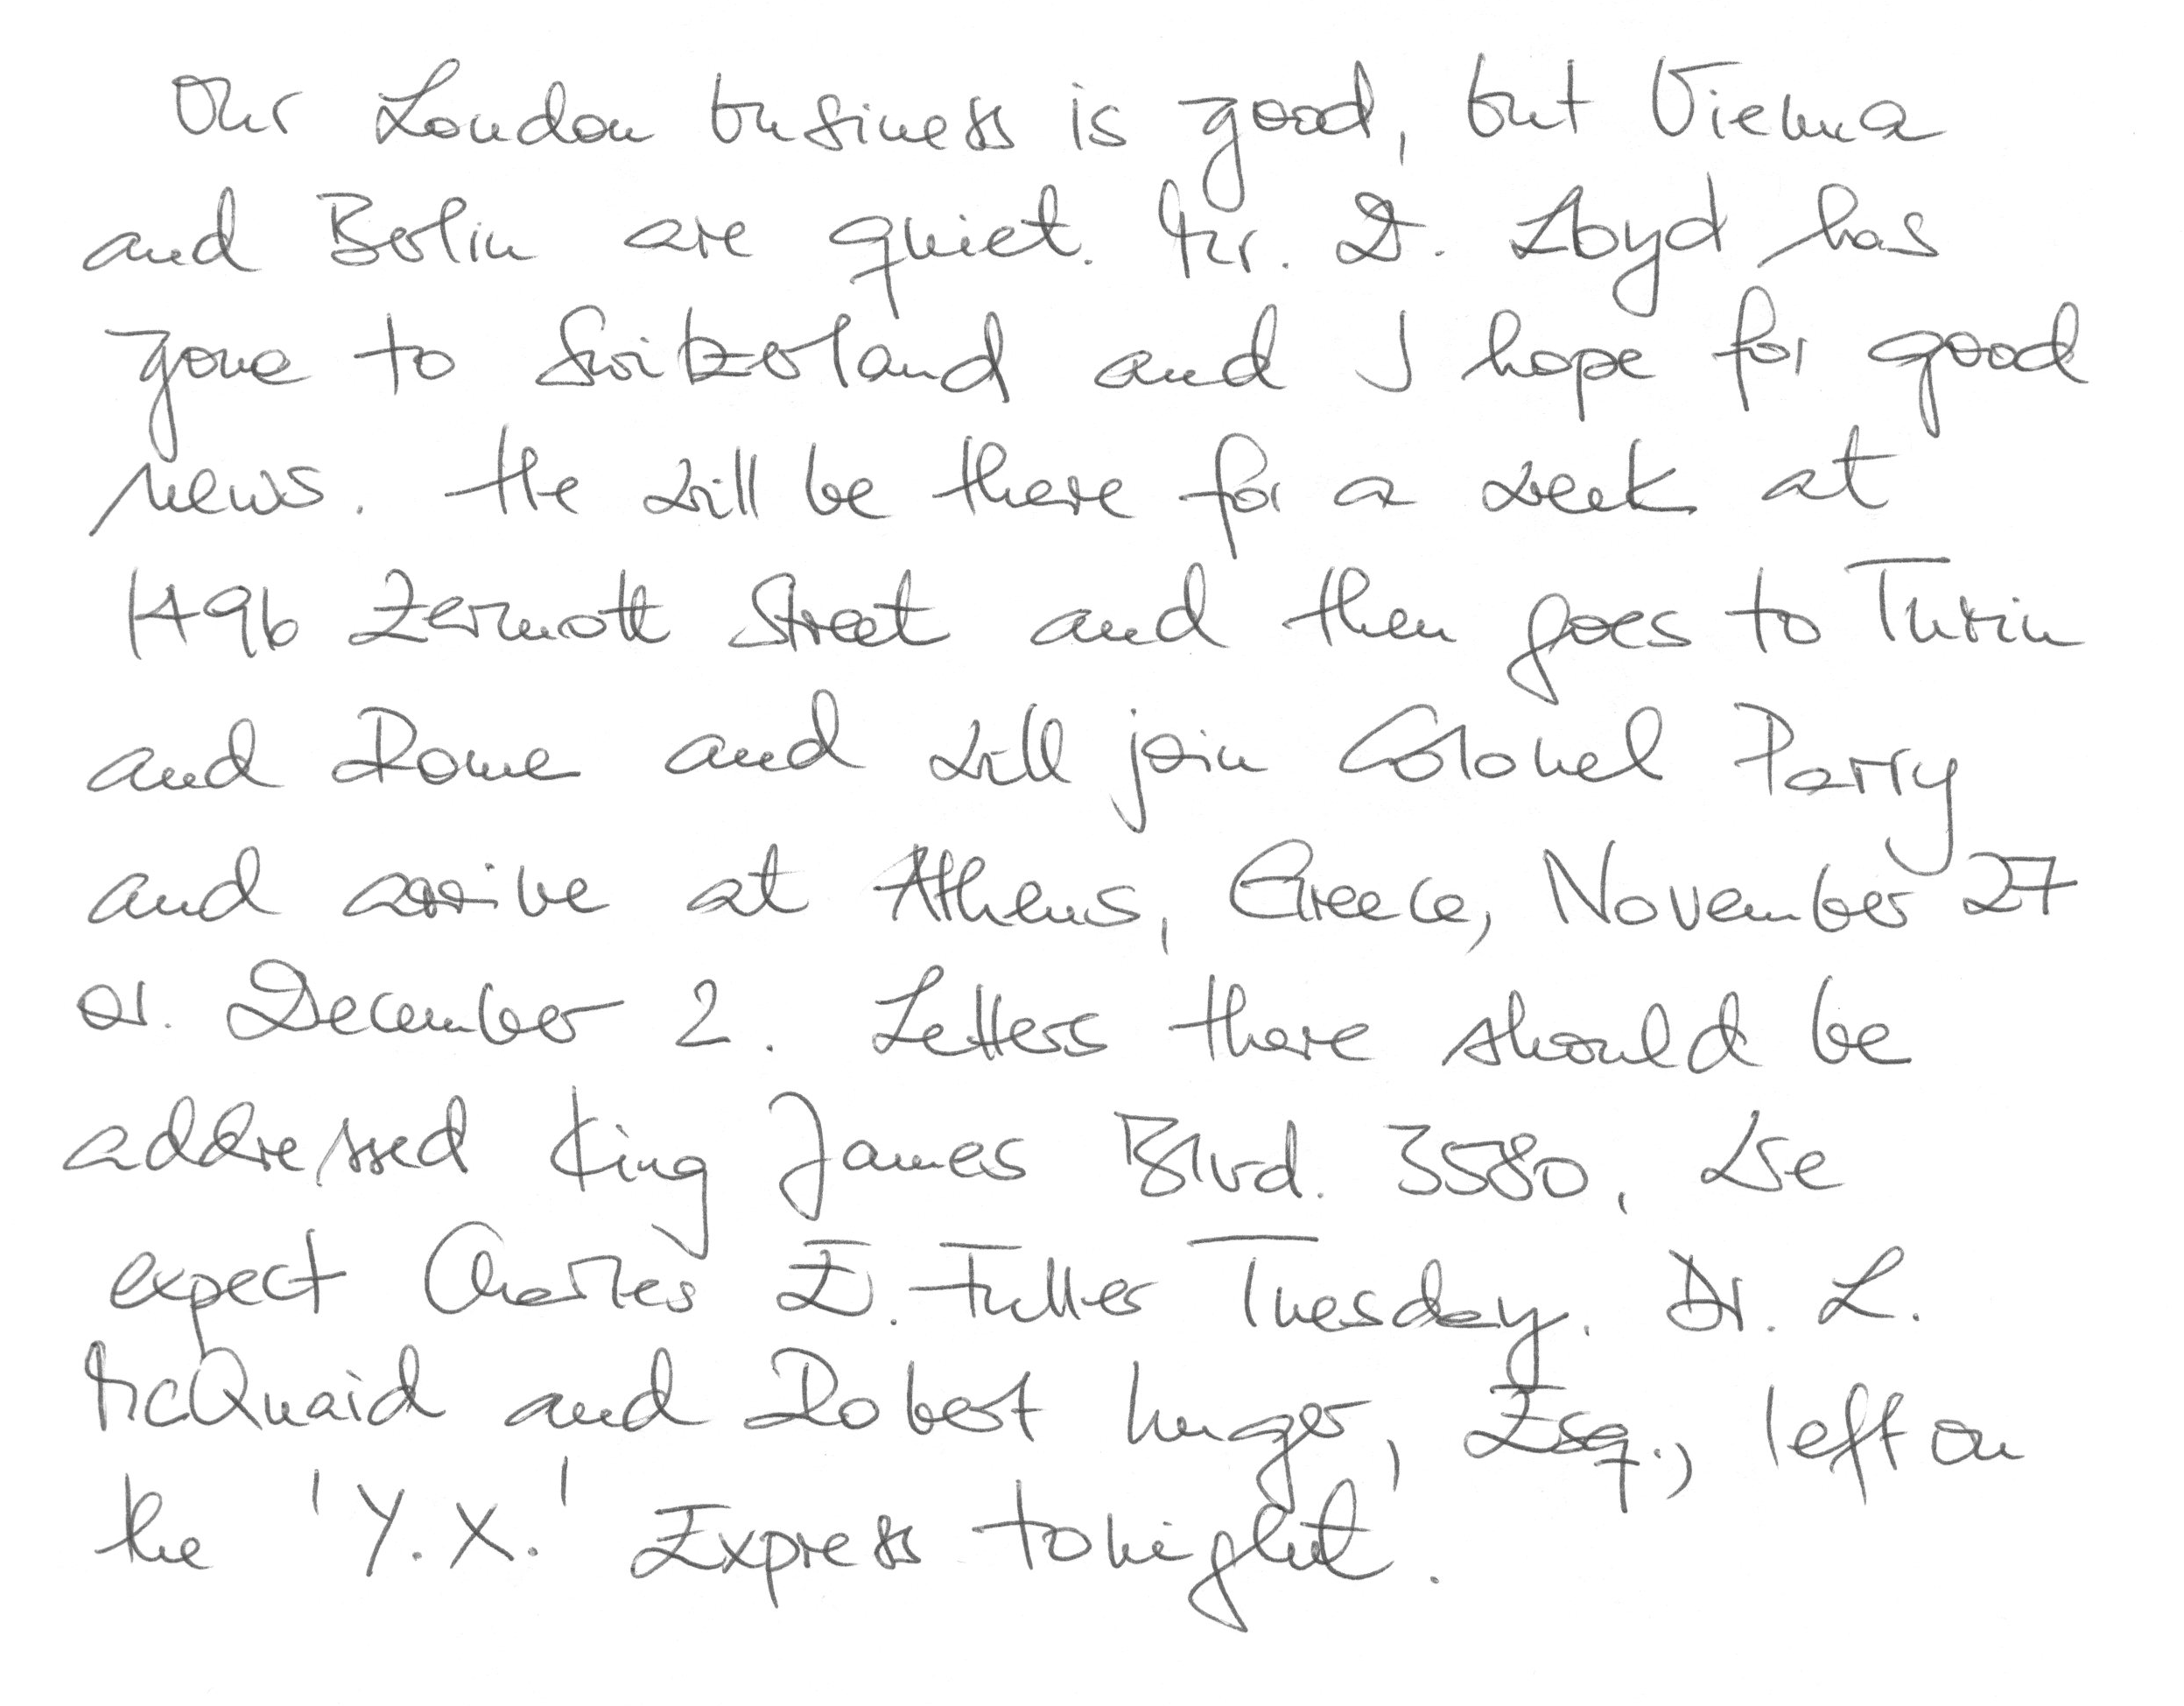 Our London business is good, but Vienna
and Berlin are quiet. Mr. D. Lloyd has
gone to Switzerland and I hope for good
news. He will be there for a week at
1496 Zermott Street and then goes to Turin
and Rome and will join Colonel Parry
and arrive at Athens, Greece, November 27
or. December 2. Letters there should be
addressed King James Blvd. 3580, We
expect Charles E. Fuller Tuesday. Dr. L.
McQuaid and Robert Unger, Esq., left on
the 'Y.X.' Express tonight.